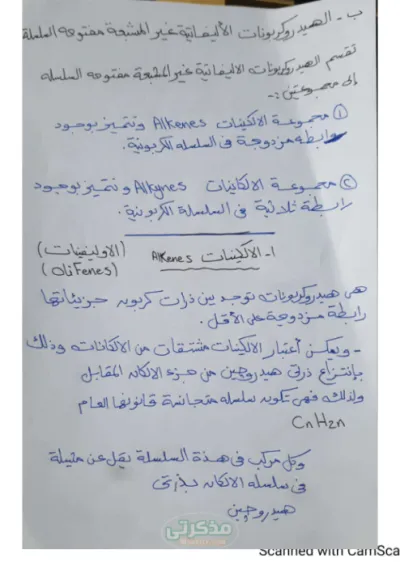 ب - الهيدروكربونات الأليفاتية غير المشبعة مفتوحه السلسلة
تقسم الهيدروكربونات الاليفاتية غير المشبعة مفتوحه السلسله
إلى مجموعتين :-
① مجموعة الالكينات Alkenes وتتميز بوجود
رابطه مزدوجة فى السلسله الكربونية.
② مجموعة الالكاينات Alkynes وتتميز بوجود
رابطة ثلاثية فى السلسلة الكربونية.
١- الالكينات Alkenes (الاوليفينات)
هى هيدروكربونات توجد بين ذرات كربون جزيئاتها
رابطة مزدوجة على الأقل.
- ويمكن أعتبار الالكينات مشتقات من الالكانات وذلك
بإنتزاع ذرتى هيدروجين من جزء الالكان المقابل
ولذلك فهى تكون سلسله متجانسة قانونها العام
CnH2n
وكل مركب فى هذة السلسلة يقل عن مثيلة
فى سلسله الالكان بذرتى
هيدروجين
مذكرتى
Scanned with CamSca